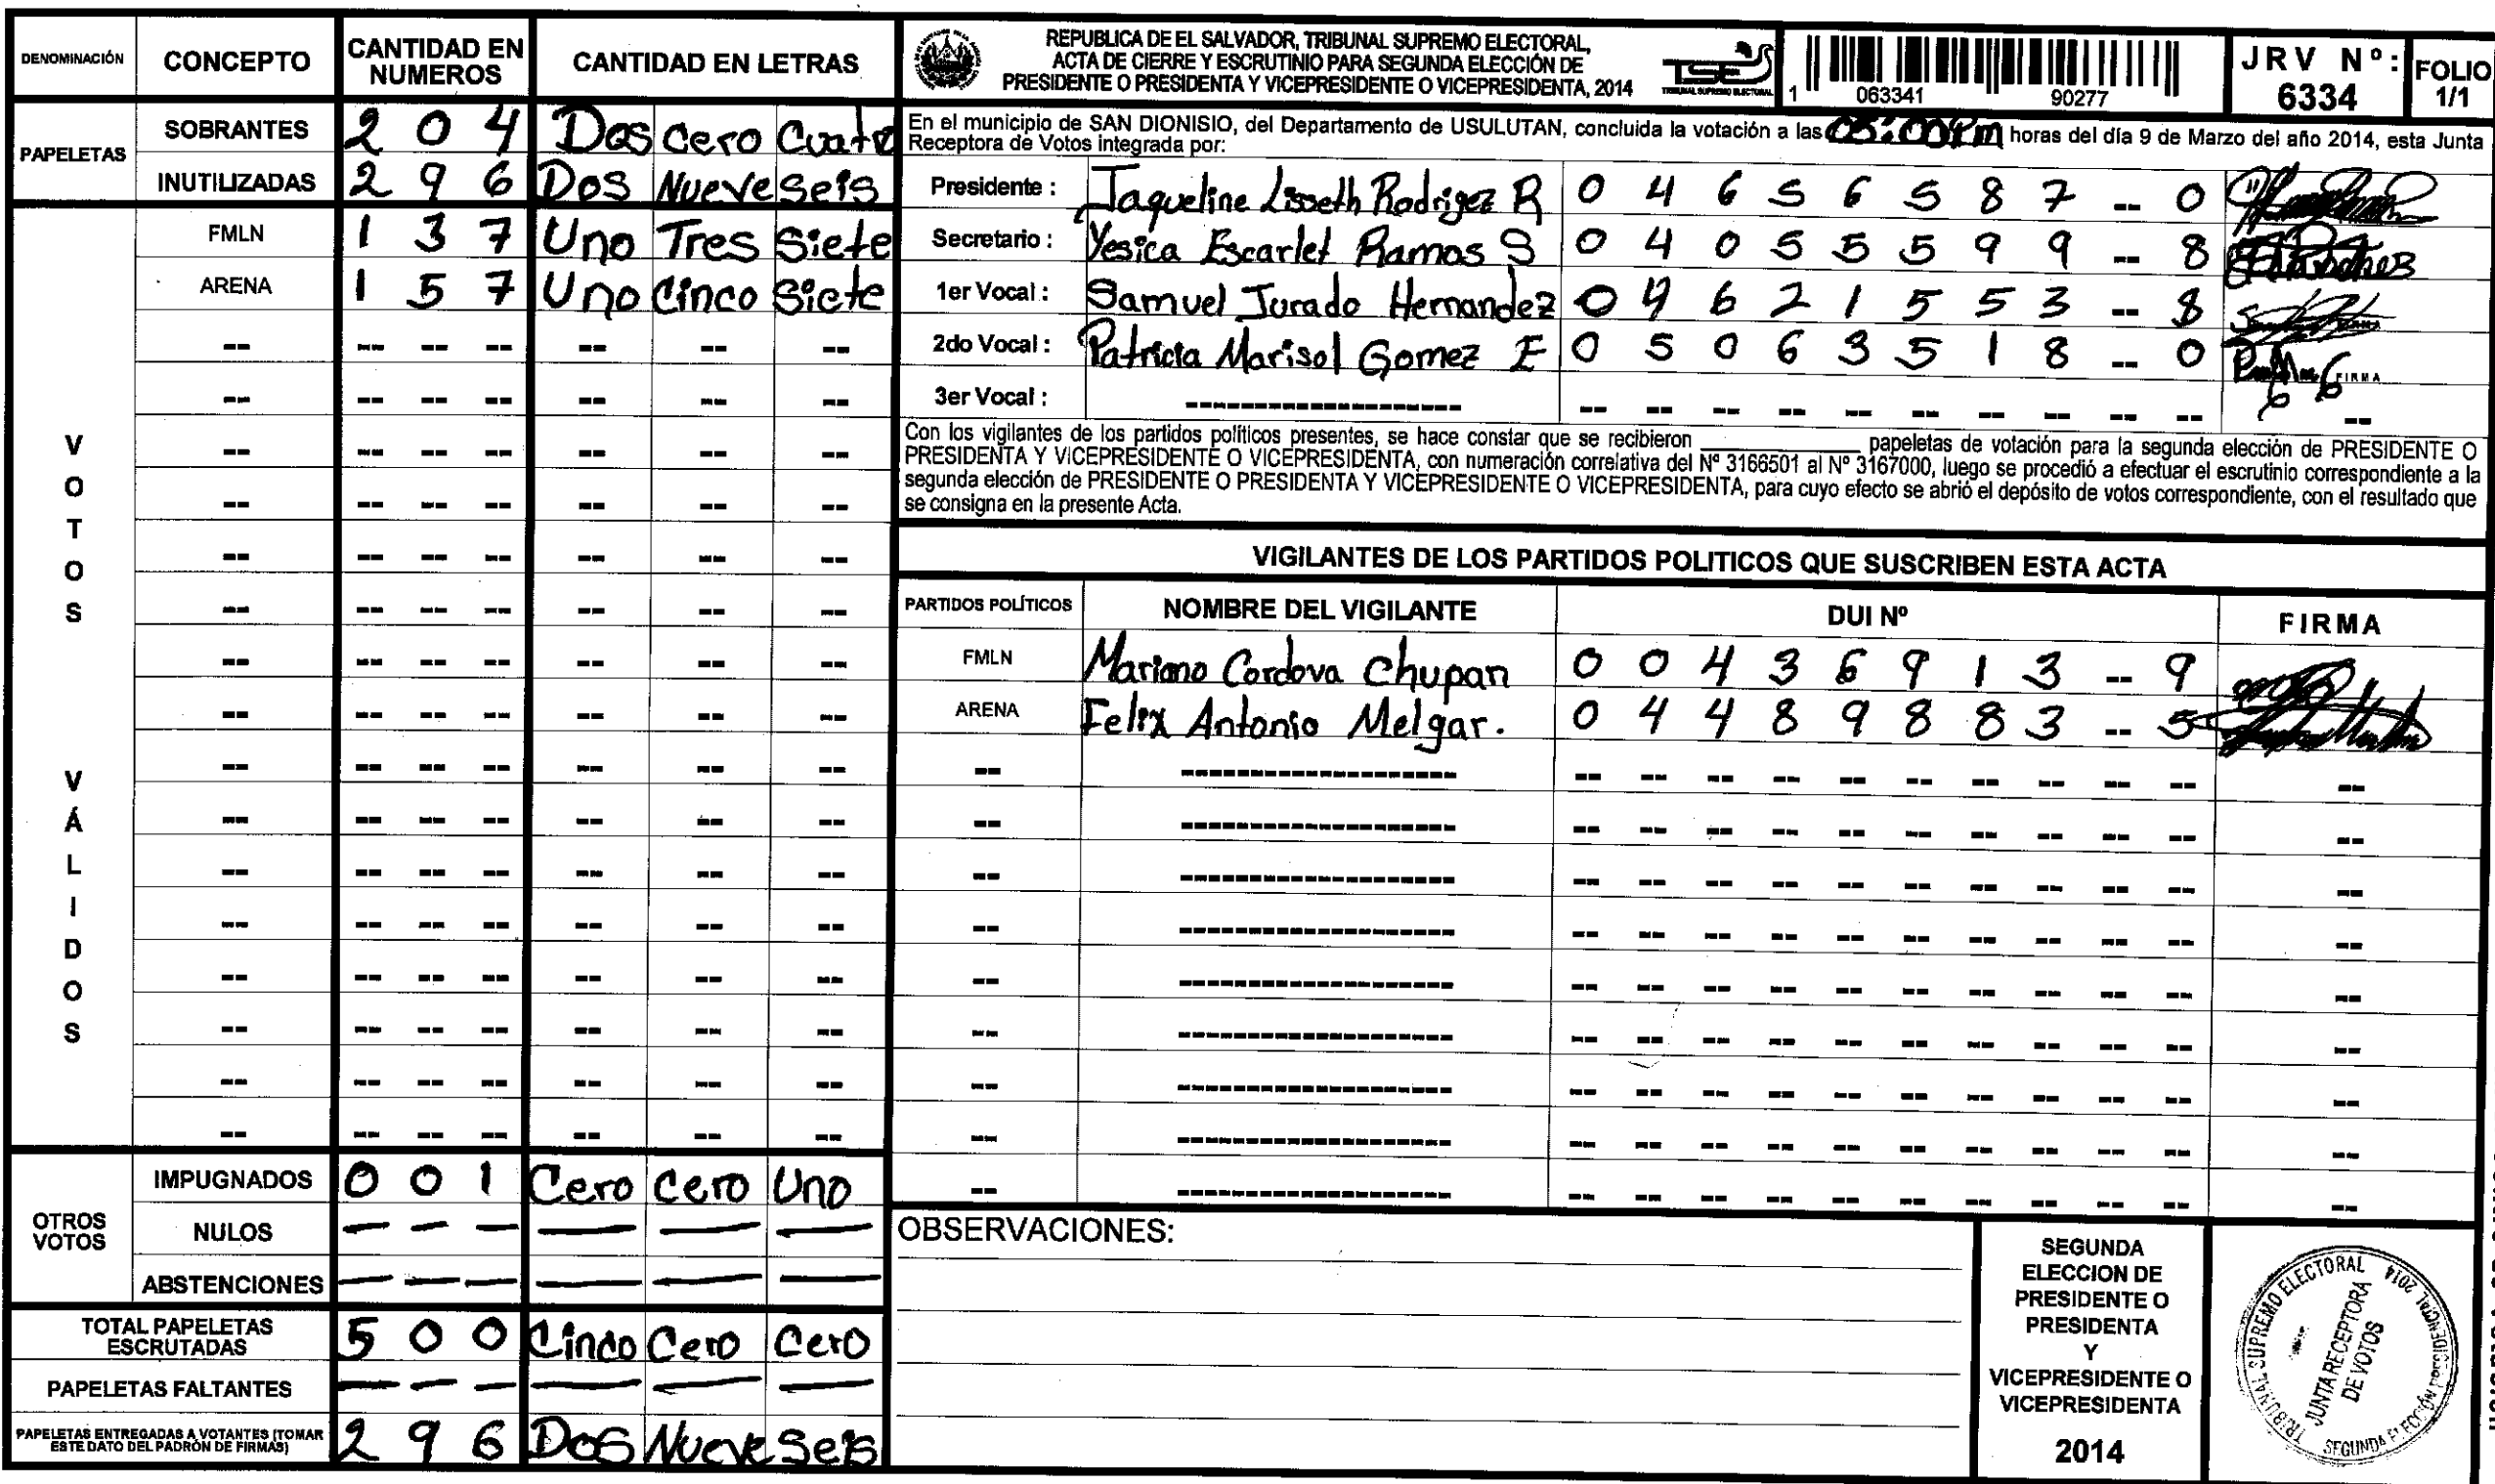 DENOMINACIÓN CONCEPTO CANTIDAD EN NUMEROS CANTIDAD EN LETRAS
PAPELETAS
SOBRANTES 2 0 4 Dos Cero Cuatro
INUTILIZADAS 2 9 6 Dos Nueve Seis
VOTOS VÁLIDOS
FMLN 1 3 7 Uno Tres Siete
ARENA 1 5 7 Uno Cinco Siete
OTROS VOTOS
IMPUGNADOS 0 0 1 Cero Cero Uno
NULOS — — — — — —
ABSTENCIONES — — — — — —
TOTAL PAPELETAS ESCRUTADAS 5 0 0 Cinco Cero Cero
PAPELETAS FALTANTES — — — — — —
PAPELETAS ENTREGADAS A VOTANTES (TOMAR ESTE DATO DEL PADRÓN DE FIRMAS) 2 9 6 Dos Nueve Seis
REPUBLICA DE EL SALVADOR, TRIBUNAL SUPREMO ELECTORAL,
ACTA DE CIERRE Y ESCRUTINIO PARA SEGUNDA ELECCIÓN DE
PRESIDENTE O PRESIDENTA Y VICEPRESIDENTE O VICEPRESIDENTA, 2014
TSE
TRIBUNAL SUPREMO ELECTORAL
1 063341 90277
JRV Nº: 6334
FOLIO 1/1
En el municipio de SAN DIONISIO, del Departamento de USULUTAN, concluida la votación a las 05:00 PM horas del día 9 de Marzo del año 2014, esta Junta
Receptora de Votos integrada por:
Presidente : Jaqueline Lisseth Rodrigez R 0 4 6 5 6 5 8 7 -- 0
Secretario : Yesica Escarlet Ramos S 0 4 0 5 5 5 9 9 -- 8
1er Vocal : Samuel Jurado Hernandez 0 4 6 2 1 5 5 3 -- 8
2do Vocal : Patricia Marisol Gomez E 0 5 0 6 3 5 1 8 -- 0 FIRMA
3er Vocal :
Con los vigilantes de los partidos políticos presentes, se hace constar que se recibieron ____________ papeletas de votación para la segunda elección de PRESIDENTE O
PRESIDENTA Y VICEPRESIDENTE O VICEPRESIDENTA, con numeración correlativa del Nº 3166501 al Nº 3167000, luego se procedió a efectuar el escrutinio correspondiente a la
segunda elección de PRESIDENTE O PRESIDENTA Y VICEPRESIDENTE O VICEPRESIDENTA, para cuyo efecto se abrió el depósito de votos correspondiente, con el resultado que
se consigna en la presente Acta.
VIGILANTES DE LOS PARTIDOS POLITICOS QUE SUSCRIBEN ESTA ACTA
PARTIDOS POLÍTICOS NOMBRE DEL VIGILANTE DUI Nº FIRMA
FMLN Mariano Cordova Chupan 0 0 4 3 6 9 1 3 -- 9
ARENA Felix Antonio Melgar. 0 4 4 8 9 8 8 3 -- 5
OBSERVACIONES:
SEGUNDA
ELECCION DE
PRESIDENTE O
PRESIDENTA
Y
VICEPRESIDENTE O
VICEPRESIDENTA
2014
TRIBUNAL SUPREMO ELECTORAL
JUNTA RECEPTORA
DE VOTOS
SEGUNDA ELECCIÓN PRESIDENCIAL 2014